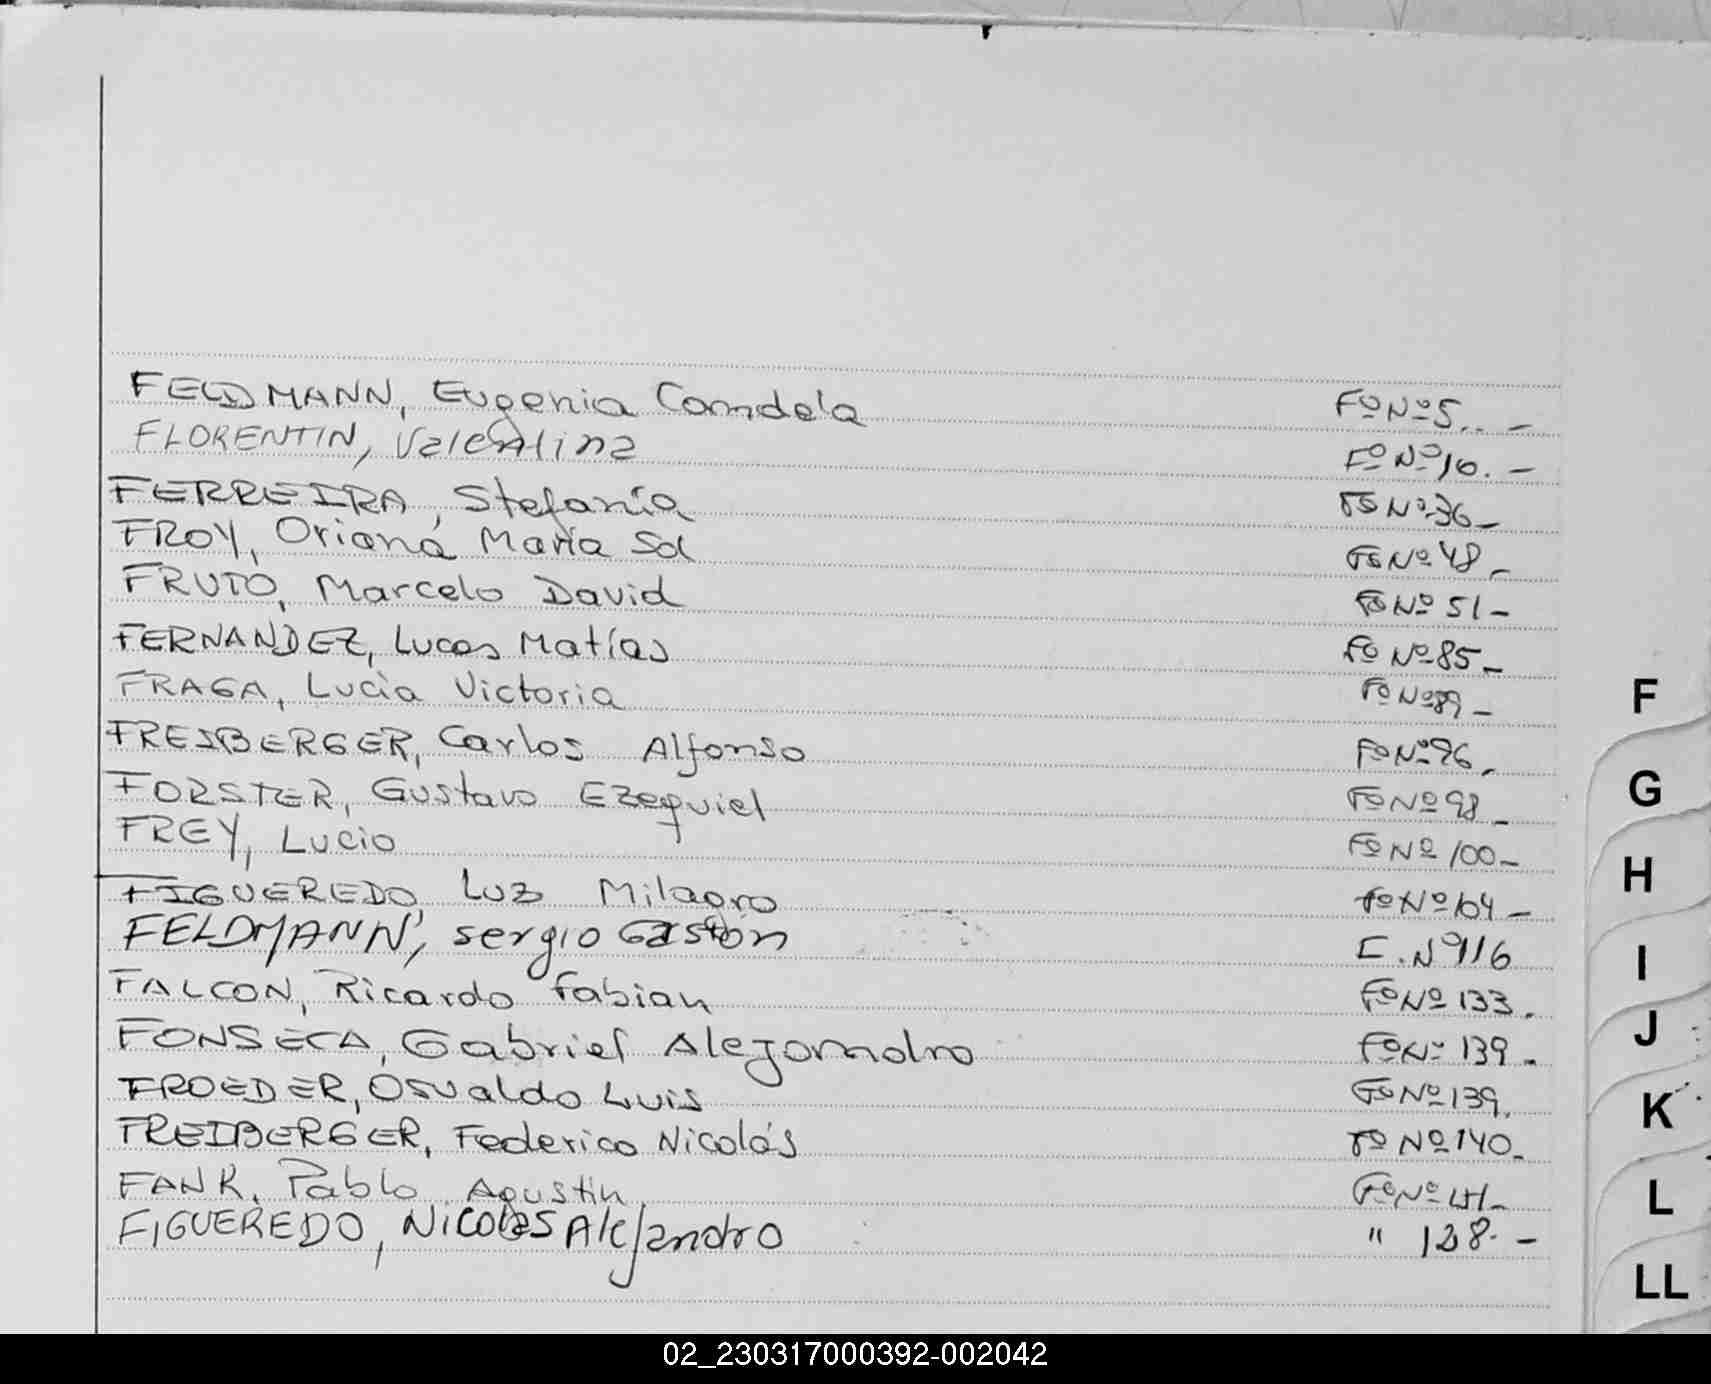 FELDMANN, Eugenia Candela Fº Nº 5.. -
FLORENTIN, Valentina Fº Nº 10. -
FERREIRA, Stefanía Fº Nº 36 -
FROY, Oriana María Sol Fº Nº 48 -
FRUTO, Marcelo David Fº Nº 51 -
FERNANDEZ, Lucas Matías Fº Nº 85 -
FRAGA, Lucía Victoria Fº Nº 89 -
FREIBERGER, Carlos Alfonso Fº Nº 96 -
FORSTER, Gustavo Ezequiel Fº Nº 98 -
FREY, Lucio Fº Nº 100 -
FIGUEREDO Luz Milagro Fº Nº 104 -
FELDMANN, sergio Gastón F. Nº 116
FALCON, Ricardo Fabian Fº Nº 133.
FONSECA, Gabriel Alejandro Fº Nº 139 -
FROEDER, Osvaldo Luis Fº Nº 139.
FREIBERGER, Federico Nicolás Fº Nº 140 -
FANK, Pablo Agustín Fº Nº 141 -
FIGUEREDO, Nicolas Alejandro " 128. -
F
G
H
I
J
K
L
LL
02_230317000392-002042